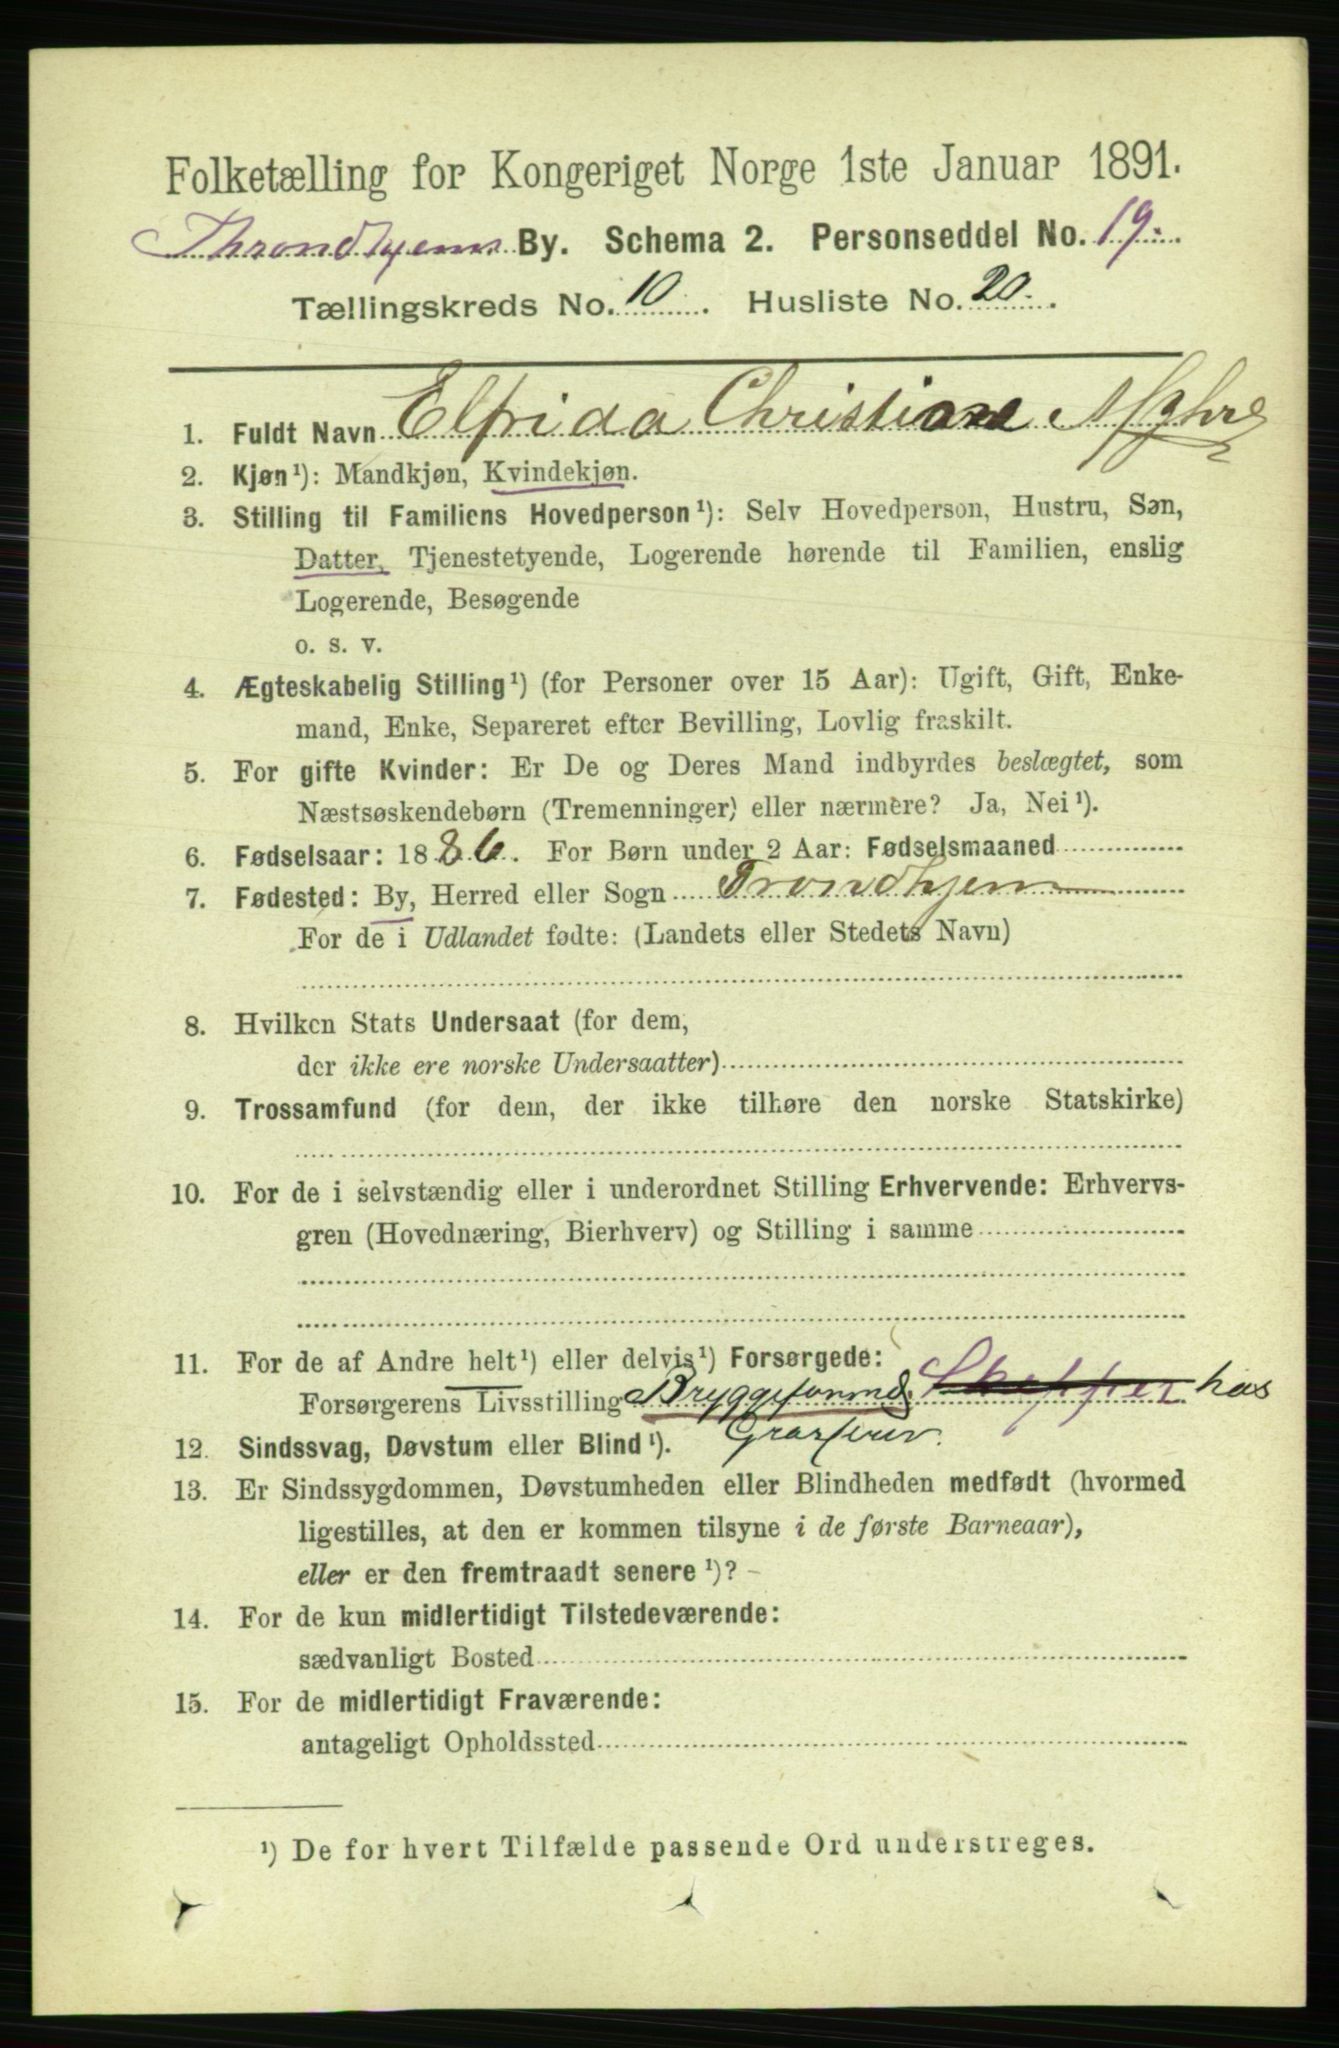 Folketælling for Kongeriget Norge 1ste Januar 1891.
Throndhjems By. Schema 2. Personseddel No. 19.
Tællingskreds No. 10. Husliste No. 20.
1. Fuldt Navn Elfrida Christiane
2. Kjøn¹): Mandkjøn, Kvindekjøn.
3. Stilling til Familiens Hovedperson¹): Selv Hovedperson, Hustru, Søn,
Datter, Tjenestetyende, Logerende hørende til Familien, enslig
Logerende, Besøgende
o. s. v.
4. Ægteskabelig Stilling¹) (for Personer over 15 Aar): Ugift, Gift, Enke-
mand, Enke, Separeret efter Bevilling, Lovlig fraskilt.
5. For gifte Kvinder: Er De og Deres Mand indbyrdes beslægtet, som
Næstsøskendebørn (Tremenninger) eller nærmere? Ja, Nei¹).
6. Fødselsaar: 1886. For Børn under 2 Aar: Fødselsmaaned
7. Fødested: By, Herred eller Sogn Trondhjem
For de i Udlandet fødte: (Landets eller Stedets Navn)
8. Hvilken Stats Undersaat (for dem,
der ikke ere norske Undersaatter)
9. Trossamfund (for dem, der ikke tilhøre den norske Statskirke)
10. For de i selvstændig eller i underordnet Stilling Erhvervende: Erhvervs-
gren (Hovednæring, Bierhverv) og Stilling i samme
11. For de af Andre helt¹) eller delvis¹) Forsørgede:
Forsørgerens Livsstilling Bryggeformd. hos
12. Sindssvag, Døvstum eller Blind¹).
13. Er Sindssygdommen, Døvstumheden eller Blindheden medfødt (hvormed
ligestilles, at den er kommen tilsyne i de første Barneaar),
eller er den fremtraadt senere¹)?
14. For de kun midlertidigt Tilstedeværende:
sædvanligt Bosted
15. For de midlertidigt Fraværende:
antageligt Opholdssted
¹) De for hvert Tilfælde passende Ord understreges.